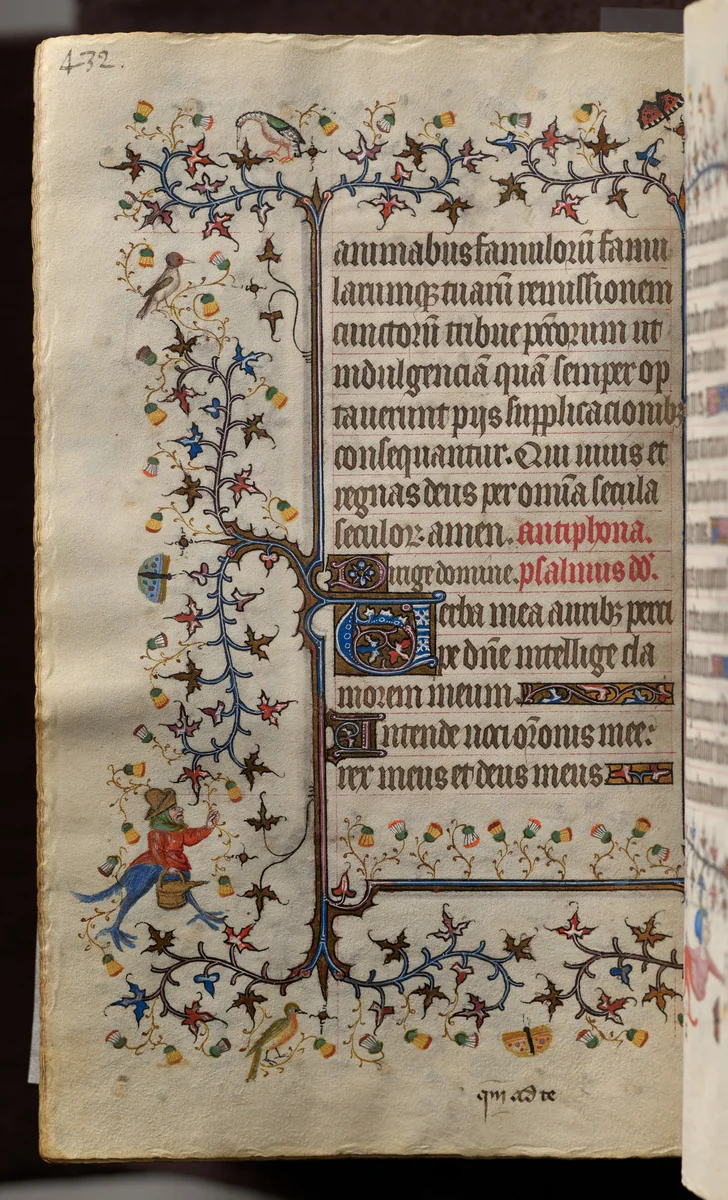 432.
animabus famuloru̅ famu
larumqꝫ tuaru̅ remissionem
cunctoru̅ tribue pc̅c̅orum ut
indulgencia̅ qua̅ semper op
tauerunt pijs supplicacionibꝫ
consequantur. Qui uiuis et
regnas deus per omn̅ia secula
seculoꝝ. amen. antiphona.
Dirige domine. psalmus dd̅.
Verba mea auribꝫ perci
pe dn̅e intellige cla
morem meum.
Intende uoci or̅onis mee:
rex meus et deus meus
qm̅ ad te